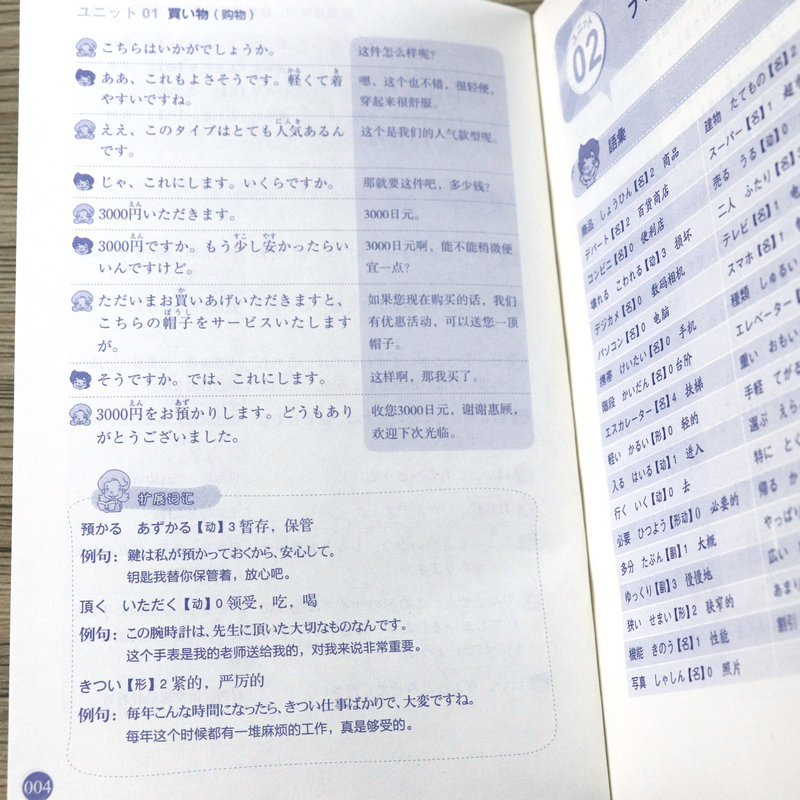 ユニット 01 買い物（购物）
こちらはいかがでしょうか。
这件怎么样呢？
かる き
ああ、これもよさそうです。軽くて着
やすいですね。
嗯，这个也不错，很轻便，
穿起来很舒服。
にんき
ええ、このタイプはとても人気あるん
です。
这个是我们的人气款型呢。
じゃ、これにします。いくらですか。
那就要这件吧，多少钱？
えん
3000円いただきます。
3000日元。
えん すこ やす
3000円ですか。もう少し安かったらい
いんですけど。
3000日元啊，能不能稍微便
宜一点？
か
ただいまお買いあげいただきますと、
ぼうし
こちらの帽子をサービスいたします
が。
如果您现在购买的话，我们
有优惠活动，可以送您一顶
帽子。
そうですか。では、これにします。
这样啊，那我买了。
えん あず
3000円をお預かりします。どうもあり
がとうございました。
收您3000日元，谢谢惠顾，
欢迎下次光临。
扩展词汇
預かる あずかる【动】3 暂存，保管
例句：鍵は私が預かっておくから、安心して。
钥匙我替你保管着，放心吧。
頂く いただく【动】0 领受，吃，喝
例句：この腕時計は、先生に頂いた大切なものなんです。
这个手表是我的老师送给我的，对我来说非常重要。
きつい【形】2 紧的，严厉的
例句：毎年こんな時間になったら、きつい仕事ばかりで、大変ですね。
每年这个时候都有一堆麻烦的工作，真是够受的。
004
ユニット
02
語彙
商品 しょうひん【名】2 商品
デパート【名】2 百货商店
コンビニ【名】0 便利店
壊れる こわれる【动】3 损坏
デジカメ【名】0 数码相机
パソコン【名】0 电脑
携帯 けいたい【名】0 手机
階段 かいだん【名】0 台阶
エスカレーター【名】4 扶梯
軽い かるい【形】0 轻的
入る はいる【动】1 进入
行く いく【动】0 去
必要 ひつよう【形动】0 必要的
多分 たぶん【副】1 大概
ゆっくり【副】3 慢慢地
狭い せまい【形】2 狭窄的
機能 きのう【名】1 性能
写真 しゃしん【名】0 照片
建物 たてもの【名】2
スーパー【名】1 超
売る うる【动】0
二人 ふたり【名】3
テレビ【名】1 电
スマホ【名】1
種類 しゅるい
エレベーター
重い おもい
手軽 てがる
選ぶ えら
特に とく
帰る か
やっぱ
広い
あまり
割引